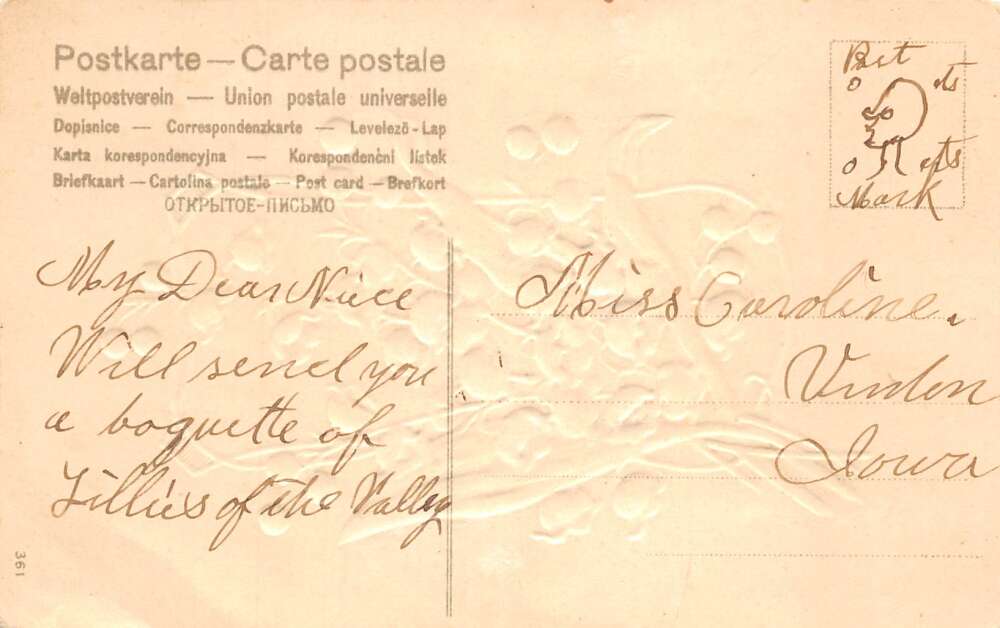 Postkarte — Carte postale
Weltpostverein — Union postale universelle
Dopisnice — Correspondenzkarte — Levelező-Lap
Karta korespondencyjna — Korespondenční lístek
Briefkaart — Cartolina postale — Post card — Brefkort
ОТКРЫТОЕ-ПИСЬМО
My Dear Niece
Will send you
a boquette of
Lillies of the Valley
Miss Caroline.
Vinton
Iowa
Mark
361